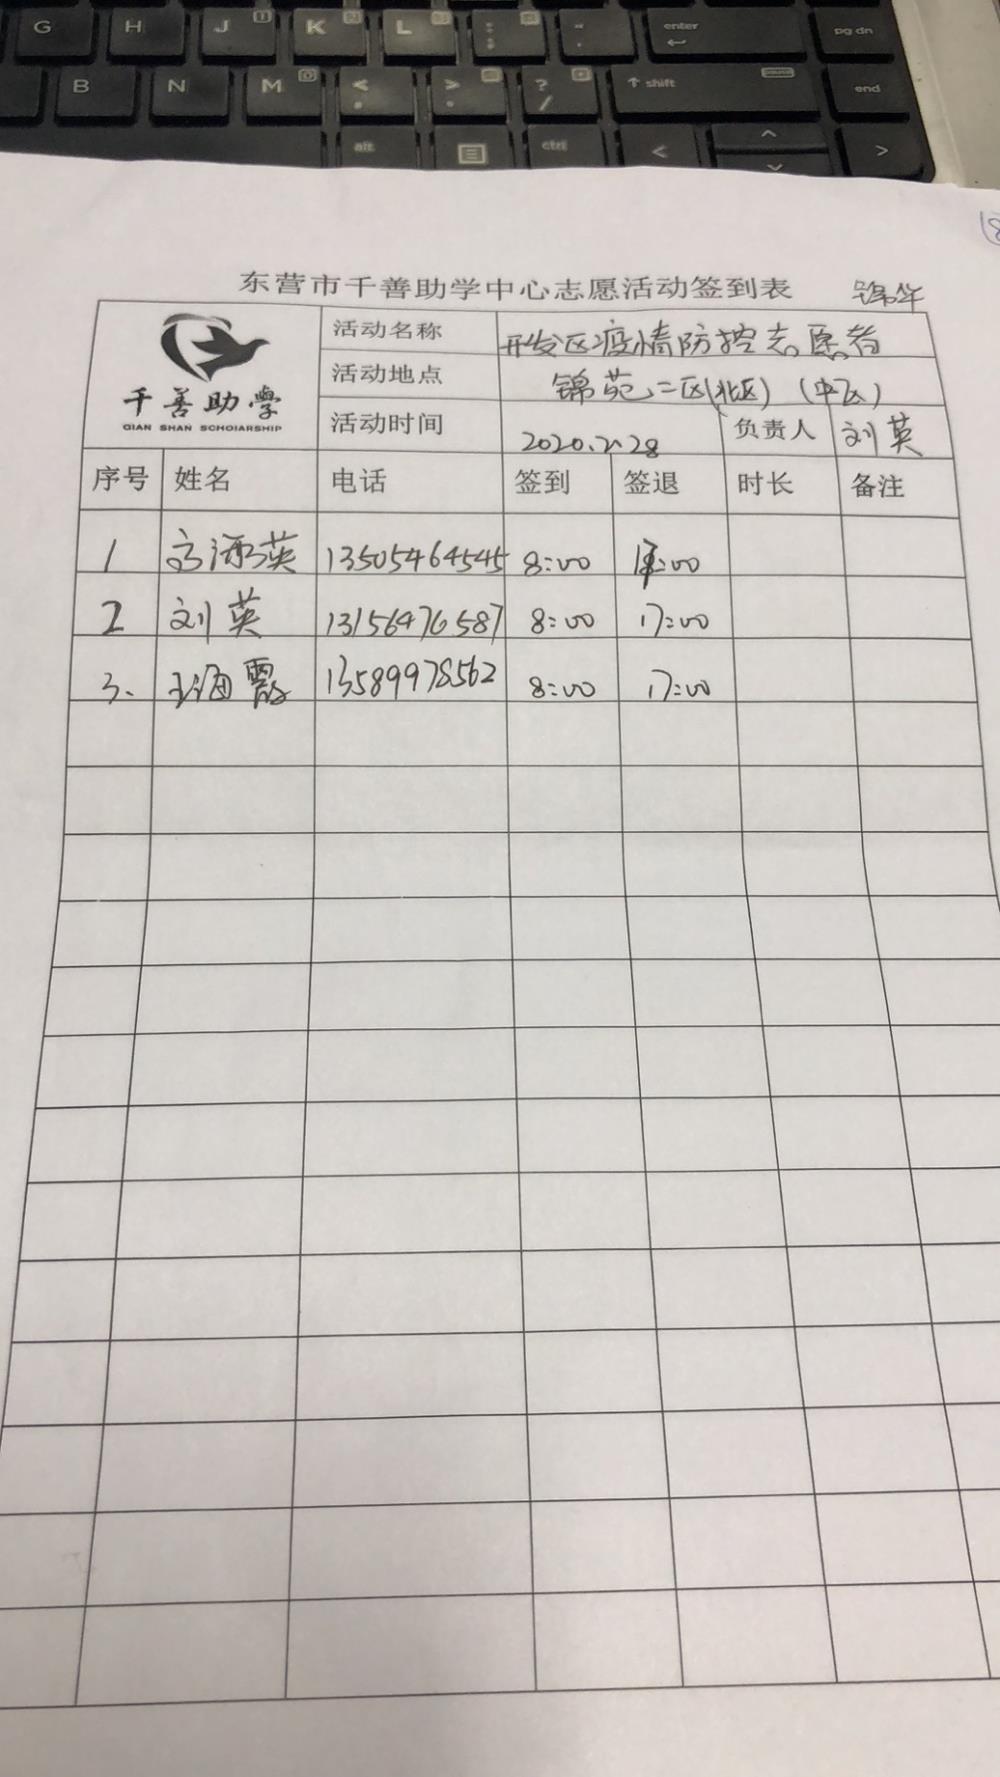 G H J K L : ; " ' enter pg dn
B N M < , > . ? / shift pause end
alt ctrl
东营市千善助学中心志愿活动签到表
千善助学
QIAN SHAN SCHOIARSHIP
活动名称 开发区疫情防控志愿者
活动地点 锦苑二区(北区) (中区)
活动时间 2020.2.28 负责人 刘英
序号 姓名 电话 签到 签退 时长 备注
1 英 13505464545 8:00 :00
2 刘英 13156476587 8:00 17:00
3. 王海霞 13589978562 8:00 17:00